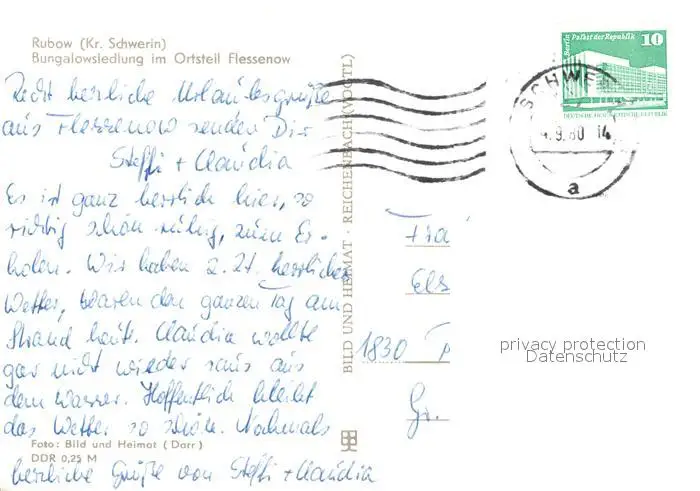 Rubow (Kr. Schwerin)
Bungalowsiedlung im Ortsteil Flessenow
Recht herzliche Urlaubsgrüße
aus Flessenow senden Dir
Steffi + Claudia
Es ist ganz herrlich hier, so
richtig schön ruhig, zum Er-
holen. Wir haben z. Zt. herrliches
Wetter, waren den ganzen Tag am
Strand heute. Claudia wollte
gar nicht wieder raus aus
dem Wasser. Hoffentlich bleibt
das Wetter so schön. Nochmals
herzliche Grüße von Steffi + Claudia
Foto: Bild und Heimat (Darr)
DDR 0,25 M
BILD UND HEIMAT · REICHENBACH (VOGTL)
Berlin Palast der Republik
10
DEUTSCHE DEMOKRATISCHE REPUBLIK
SCHWE
.9.80 14
a
Fra
Els
1830
Gr.
privacy protection
Datenschutz